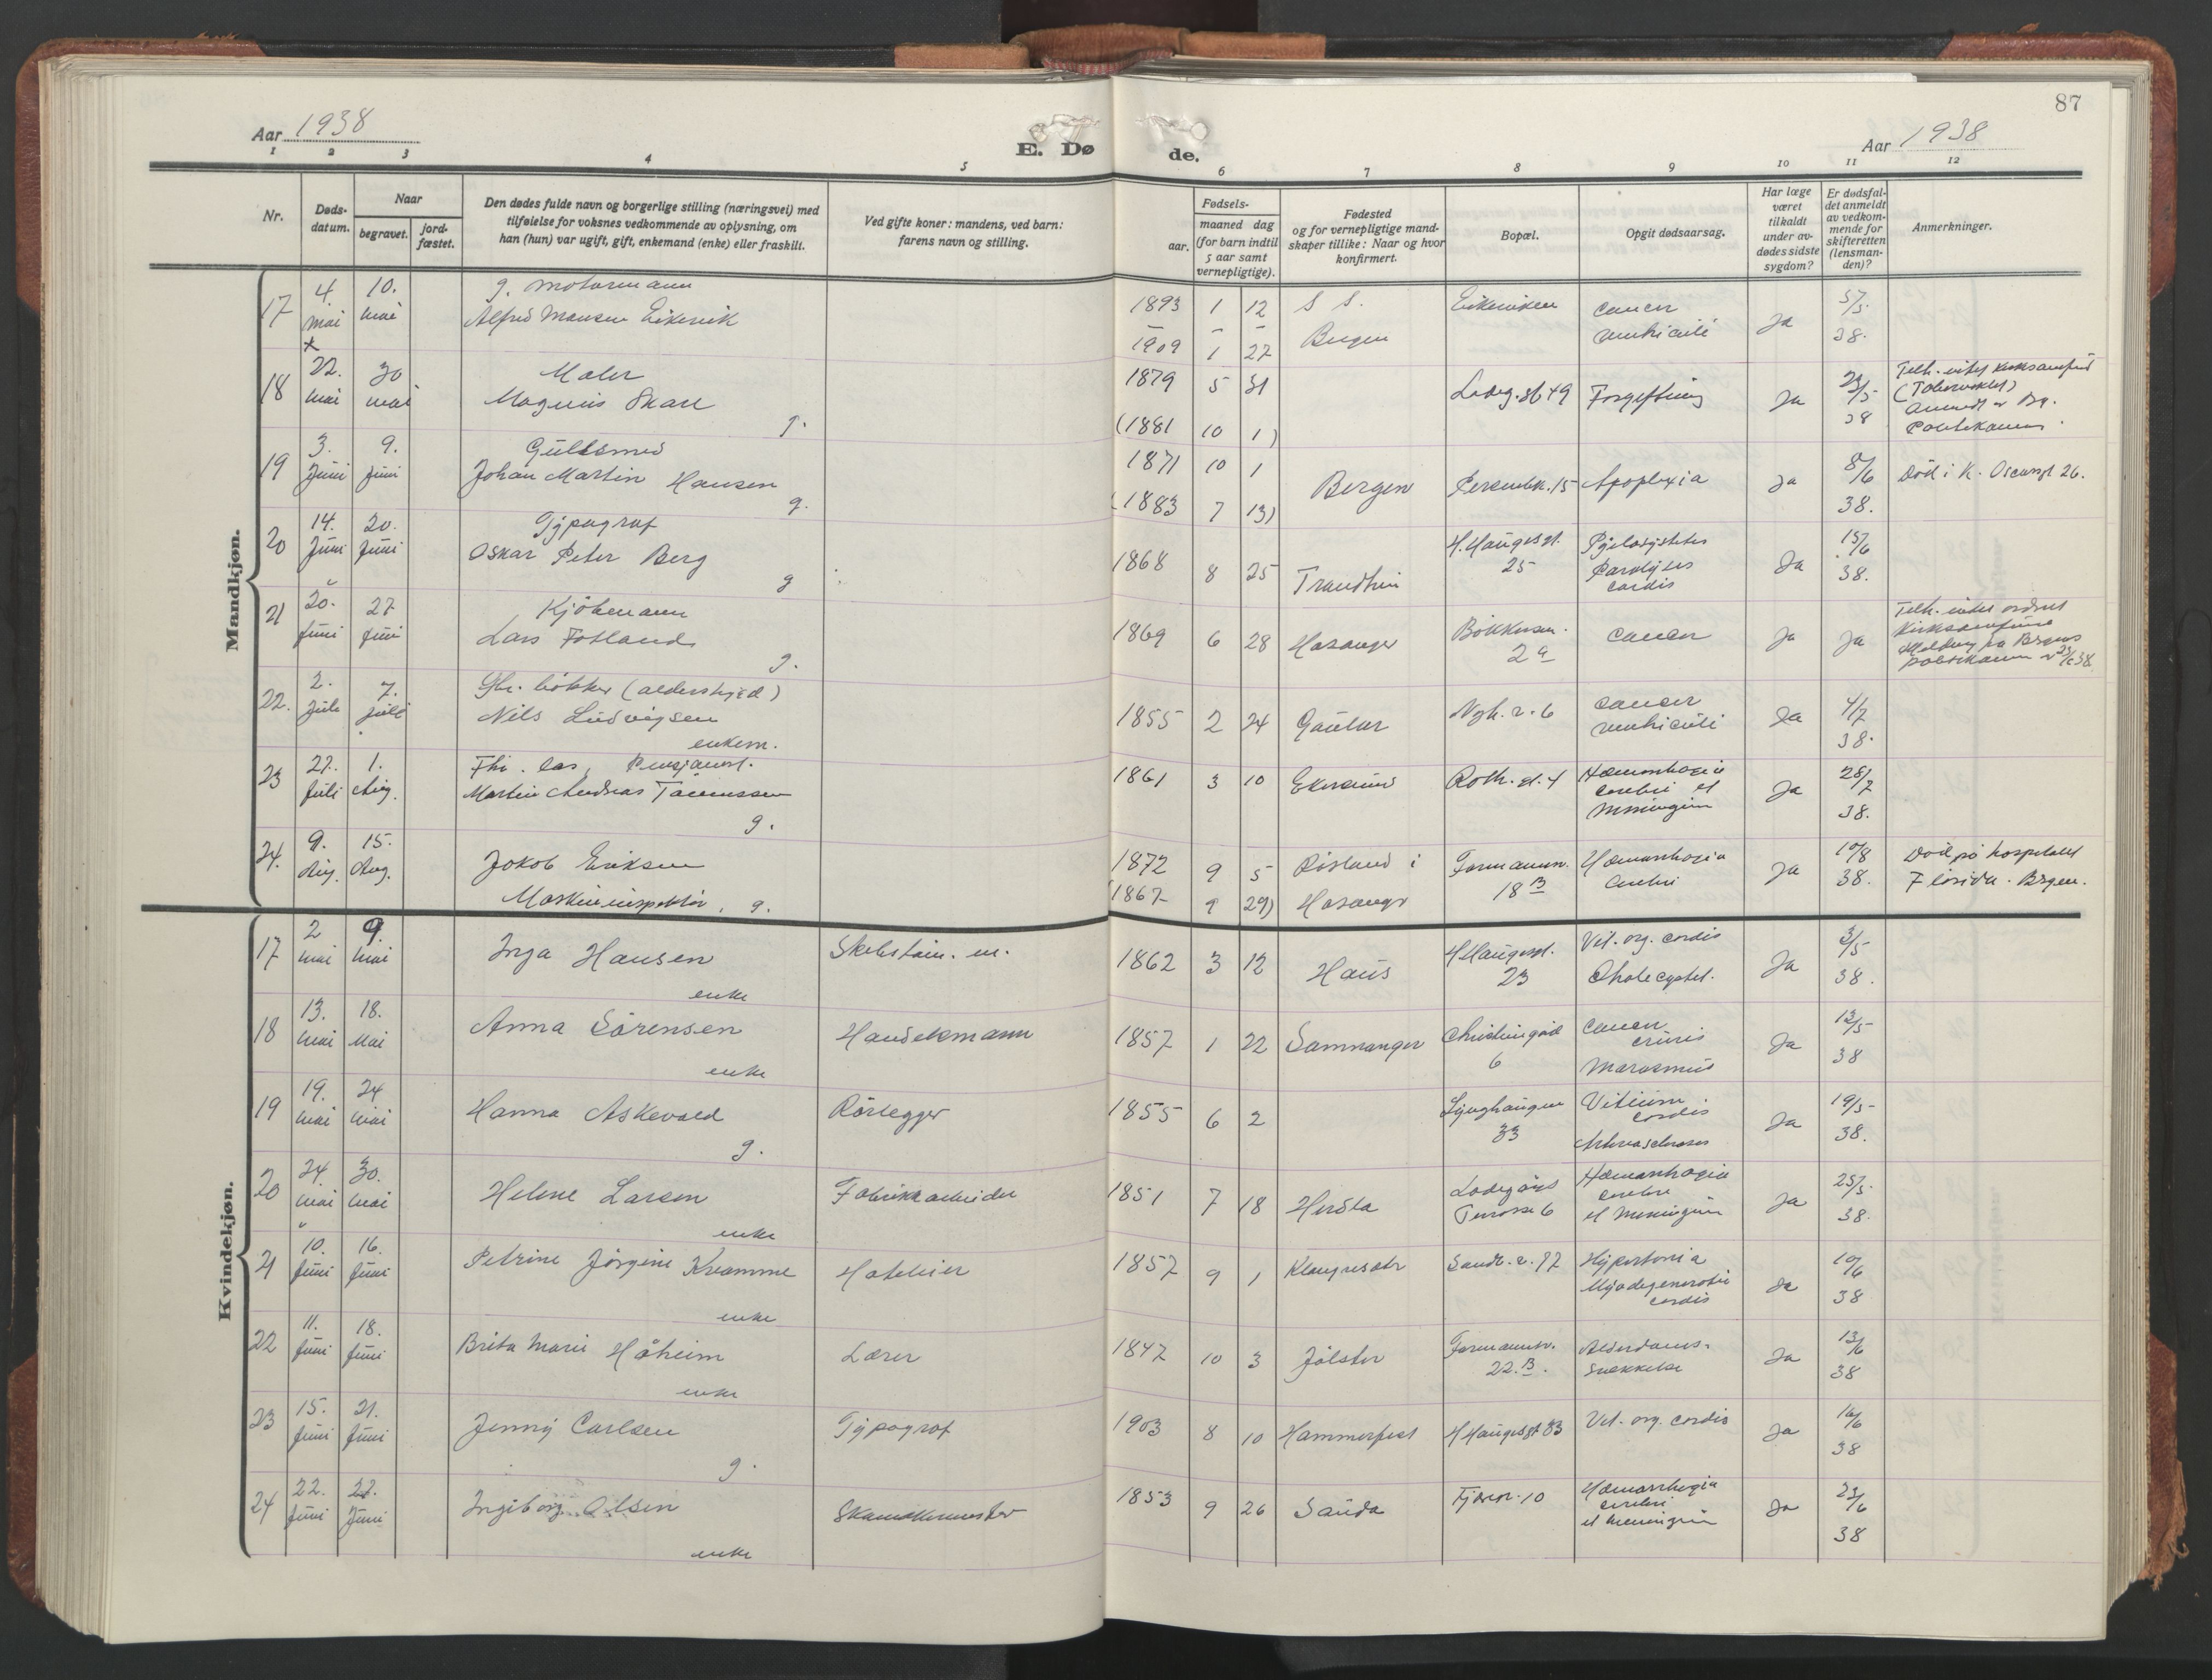 87
Aar 1938
E. Dø
de.
Aar 1938
1 2 3 4 5 6 7 8 9 10 11 12
Nr.
Døds-
datum.
Naar
begravet.
jord-
fæstet.
Den dødes fulde navn og borgerlige stilling (næringsvei) med
tilføielse for voksnes vedkommende av oplysning, om
han (hun) var ugift, gift, enkemand (enke) eller fraskilt.
Ved gifte koner: mandens, ved barn:
farens navn og stilling.
Fødsels-
aar.
maaned dag
(for barn indtil
5 aar samt
vernepligtige).
Fødested
og for vernepligtige mand-
skaper tillike: Naar og hvor
konfirmert.
Bopæl.
Opgit dødsaarsag.
Har læge
været
tilkaldt
under av-
dødes sidste
sygdom?
Er dødsfal-
det anmeldt
av vedkom-
mende for
skifteretten
(lensman-
den)?
Anmerkninger.
Mandkjøn.
17 4. mai 10. mai
g. motormann
Alfred Monsen Eikevik
1893 1 12
1909 1 27
Bergen
cancer
ventriculi
Ja 5/5 38.
18 22. mai 30 mai
Maler
Magnus Skare
g.
1879 5 31
(1881 10 1)
Ladeg.gt 49
Forgiftning
Ja 23/5 38
(Tabernaklet)
19 3. Juni 9. Juni
Gullsmed
Johan Martin Hansen
g.
1871 10 1
(1883 7 13)
Bergen
Apoplexia
Ja 8/6 38.
Död i K. Oscarsgt 26.
20 14. Juni 20. Juni
Typograf
Oskar Peter Berg
g
1868 8 25
Trondhjem
H. Haugesgt.
25
Pyelocystitis
Paralysis
cordis
Ja 15/6 38.
21 20. Juni 27 Juni
Kjöbmann
Lars Fotland
g.
1869 6 28
Hosanger
2a
cancer
Ja Ja
22. 2. juli 7. juli
Nils Ludvigsen
enkem.
1855 2 24
Gaular
Nyh.v. 6
cancer
ventriculi
Ja 4/7 38.
23 27. juli 1. Aug.
Martin Andreas Tönnessen
g.
1861 3 10
Ekersund
Roth. gt. 4
Hæmorrhagia
cerebri et
meningium
Ja 28/7 38.
24. 9. Aug. 15. Aug.
Jakob Eriksen
Maskininspektör. g.
1872 9 5
(1867 9 29)
Risland i
Hosanger
Formannsv.
18 B
Hæmorrhagia
cerebri
Ja 10/8 38.
Död på hospitalet
Florida. Bergen.
Kvindekjøn.
17 2 mai 9. mai
Inga Hansen
enke
1862 3 12
Haus
H Haugesgt.
23
Vit. org. cordis
Cholecystit.
Ja 3/5 38.
18 13. mai 18. Mai
Anna Sörensen
enke
Handelsmann
1857 1 22
Samnanger
6
cancer
cruris
Marasmus
Ja 13/5 38
19 19. mai 24 mai
Hanna Askevold
g.
Rörlegger
1855 6 2
Lynghaugen
33
Vitium
cordis
Arteriosclerosis
Ja 19/5 38.
20 24. mai 30. mai
Helene Larsen
enke
Fabrikkarbeider
1851 7 18
Herdla
Ladegårds
Terasse 6
Hæmorrhagia
cerebri
et meningium
Ja 25/5 38.
21 10. Juni 16. Juni
Petrine Jörgine Kvamme
enke
Hotelier
1857 9 1
Sandv.v. 97
Hypertonia
Myodegeneratio
cordis
Ja 10/6 38
22 11. Juni 18. Juni
Brita Marie Håheim
enke
Lærer
1847 10 3
Jölster
Formannsv.
22. B.
Alderdoms-
svekkelse
Ja 13/6 38
23 15. Juni 21. Juni
Jenny Carlsen
g.
Typograf
1903 8 10
Hammerfest
H Haugesgt 33
Vit. org. cordis
Ja 16/6 38
24 22. Juni 27. Juni
Ingiborg Olsen
enke
1853 9 26
Sauda
Fjøsv. 10
Hæmorrhagia
cerebri
et meningium
Ja 23/6 38